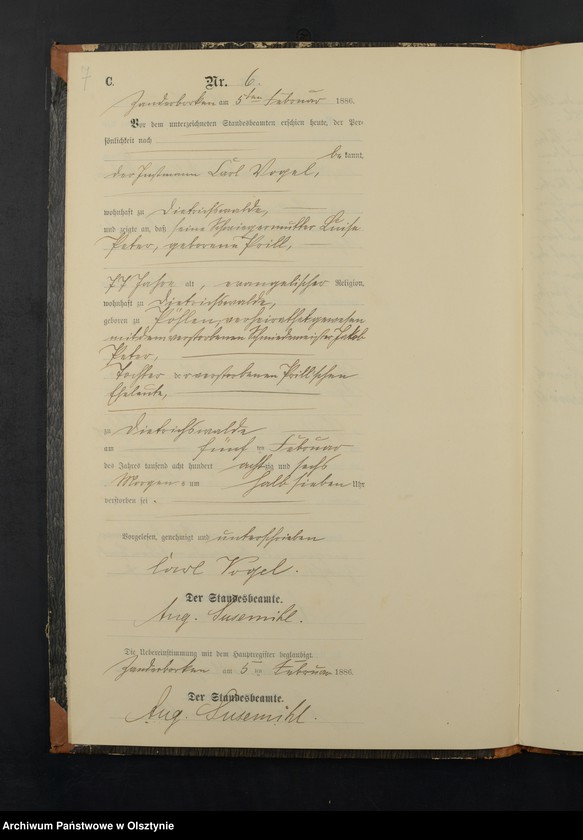 7
C.
Nr. 6.
Zanderborken am 5ten Februar 1886.
Vor dem unterzeichneten Standesbeamten erschien heute, der Per-
sönlichkeit nach
bekannt,
der Instmann Carl Vogel,
wohnhaft zu Dietrichswalde,
und zeigte an, daß seine Schwiegermutter Luise
Peter, geborene Prill,
77 Jahre alt, evangelischer Religion,
wohnhaft zu Dietrichswalde,
geboren zu Pöhlen, verheirathet gewesen
mit dem verstorbenen Schmiedemeister Jakob
Peter,
Tochter der verstorbenen Prill'schen
Eheleute,
zu Dietrichswalde
am fünf ten Februar
des Jahres tausend acht hundert achtzig und sechs
Morgens um halb sieben Uhr
verstorben sei.
Vorgelesen, genehmigt und unterschrieben
Carl Vogel.
Der Standesbeamte.
Aug. Susemihl.
Die Uebereinstimmung mit dem Hauptregister beglaubigt.
Zanderborken am 5 ten Februar 1886.
Der Standesbeamte.
Aug. Susemihl.
Archiwum Państwowe w Olsztynie